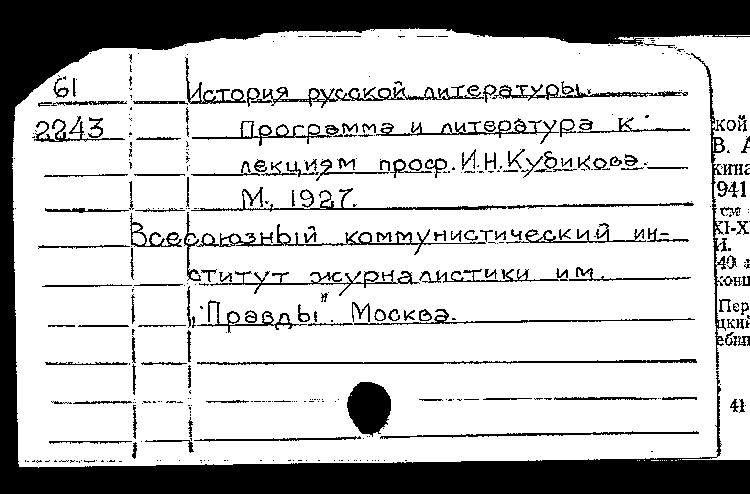 61 История русской литературы.
2243 Программа и литература к
лекциям проф. И.Н.Кубикова.
М., 1927.
Всесоюзный коммунистический ин-
ститут журналистики им.
„Правды". Москва.
кой
В. А
кина
941
см
XI-X
И.
40
конц
Пер
цкий
ебни
41